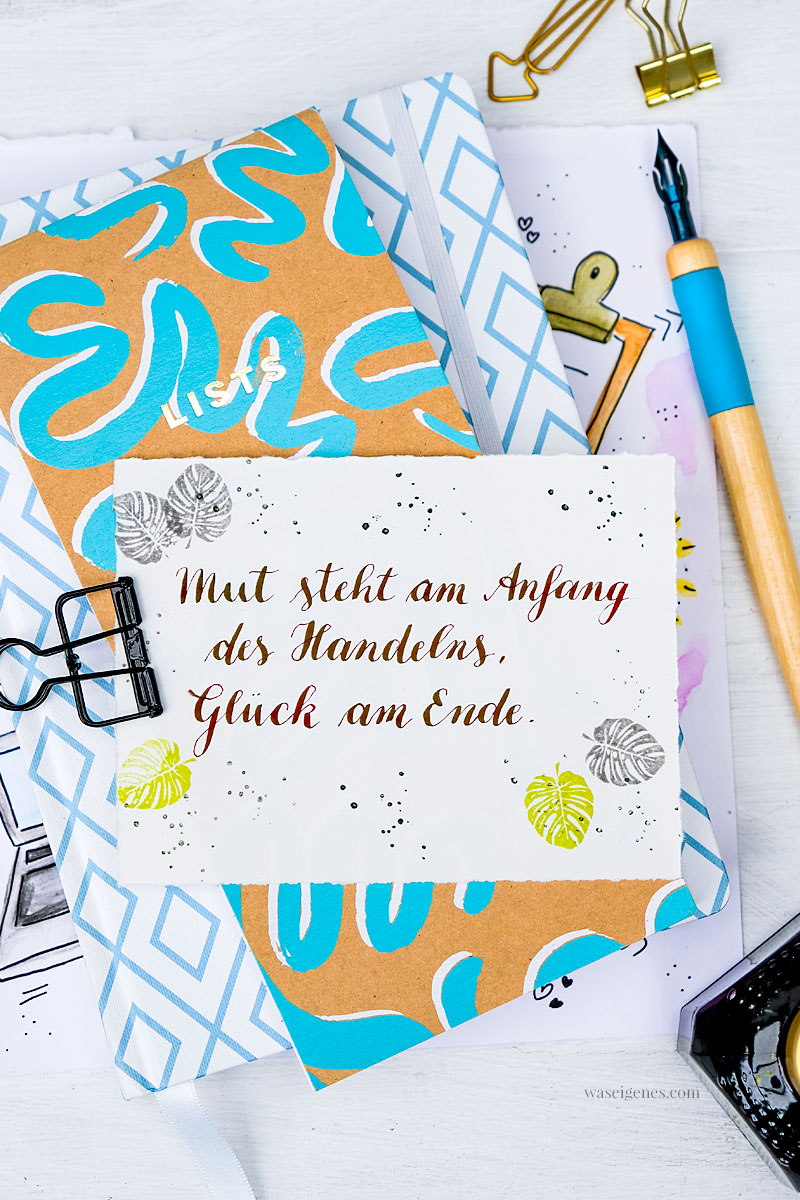 LISTS
Mut steht am Anfang
des Handelns,
Glück am Ende.
waseigenes.com